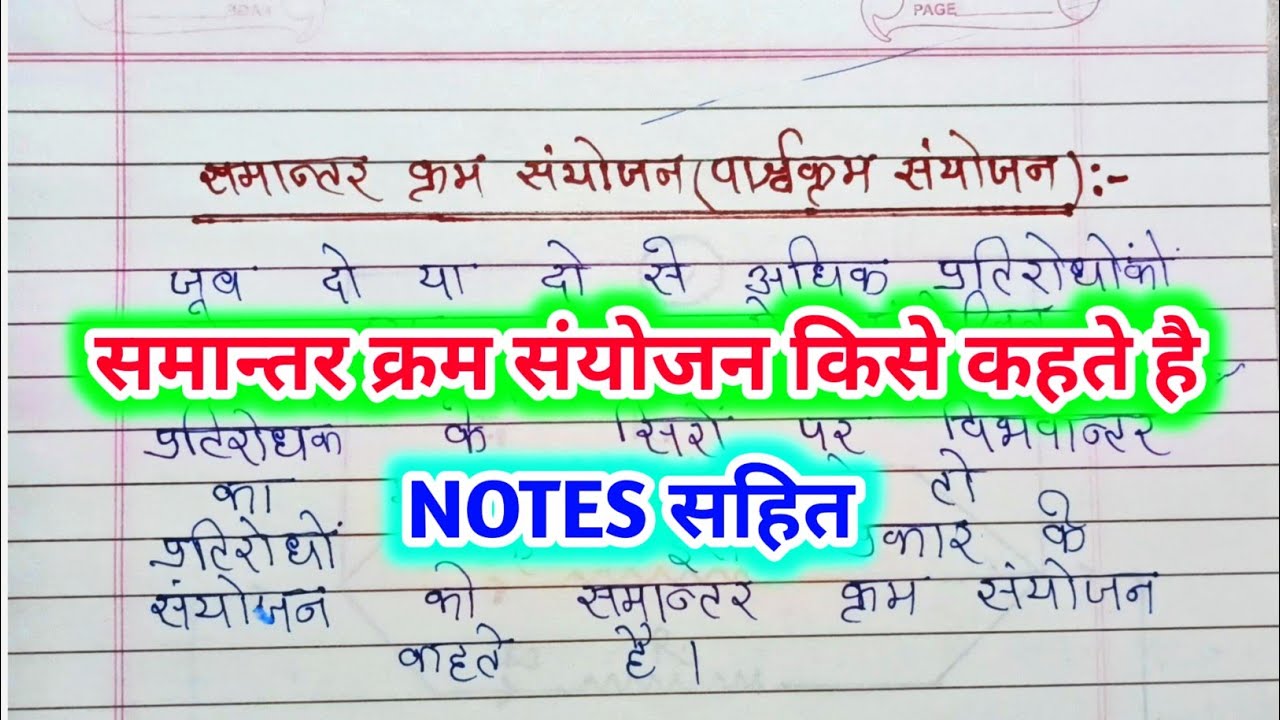 PAGE
समान्तर क्रम संयोजन (पार्श्वक्रम संयोजन) :-
जब दो या दो से अधिक प्रतिरोधों को
समान्तर क्रम संयोजन किसे कहते है
प्रतिरोधक के सिरों पर विभवान्तर
का हो
NOTES सहित
प्रतिरोधों प्रकार के
संयोजन को समान्तर क्रम संयोजन
कहते है।